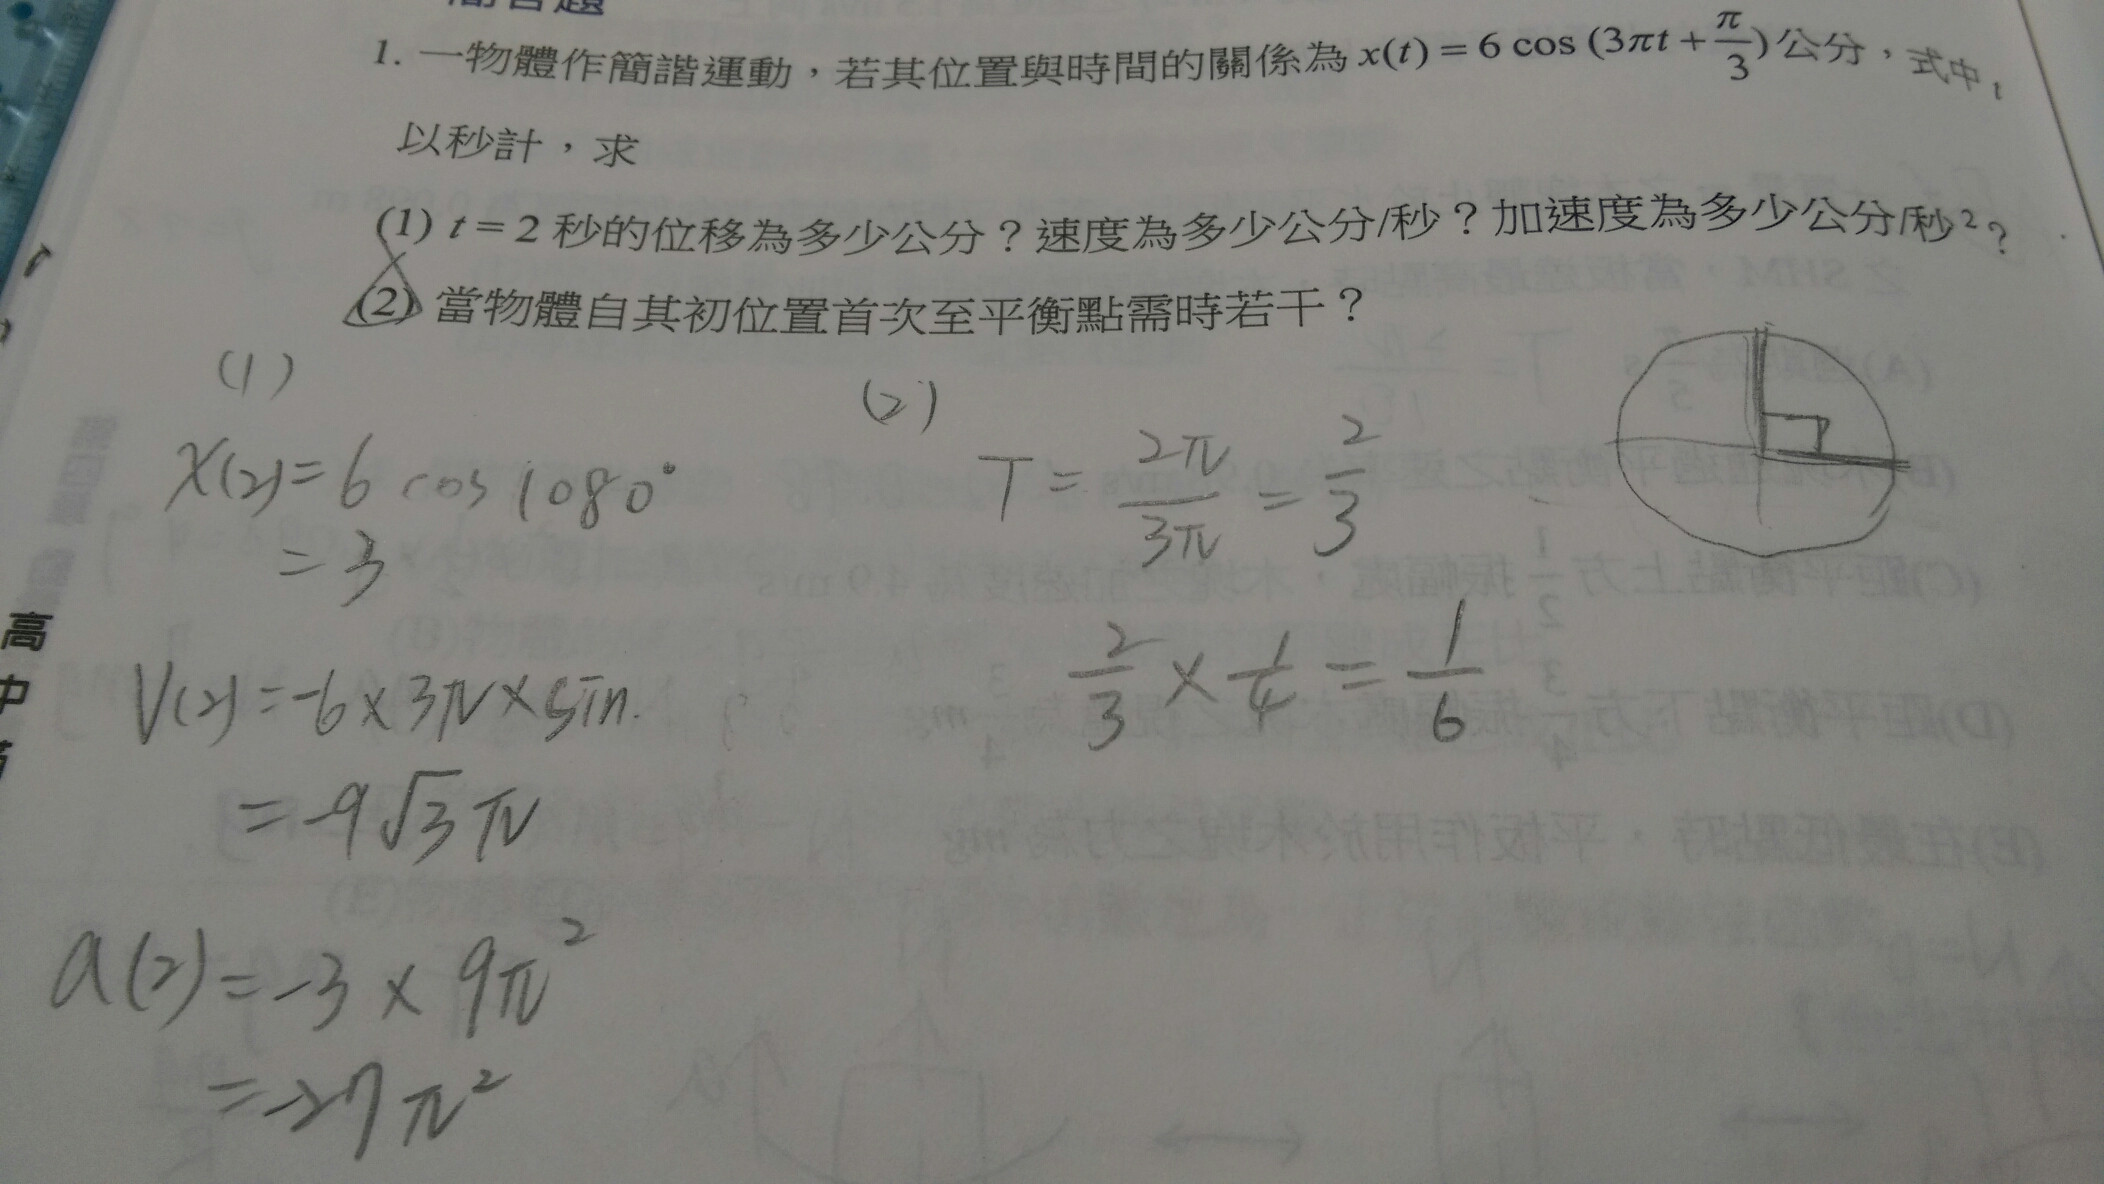 簡答題
1. 一物體作簡諧運動，若其位置與時間的關係為 x(t) = 6 cos (3πt + π/3) 公分，式中 t
以秒計，求
(1) t = 2 秒的位移為多少公分？速度為多少公分/秒？加速度為多少公分/秒²？
(2) 當物體自其初位置首次至平衡點需時若干？
(1)
X(2) = 6 cos 1080°
= 3
V(2) = -6 × 3π × sin.
= -9√3 π
a(2) = -3 × 9π²
= -27 π²
(2)
T = 2π/3π = 2/3
2/3 × 1/4 = 1/6
高
中